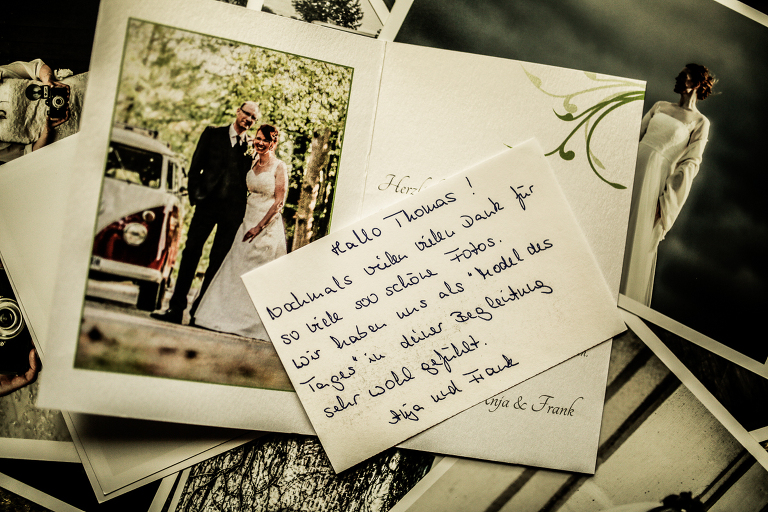 Herzl
Hallo Thomas !
Nochmals vielen vielen Dank für
so viele soo schöne Fotos.
Wir haben uns als "Model des
Tages" in deiner Begleitung
sehr wohl gefühlt.
Anja und Frank
nja & Frank